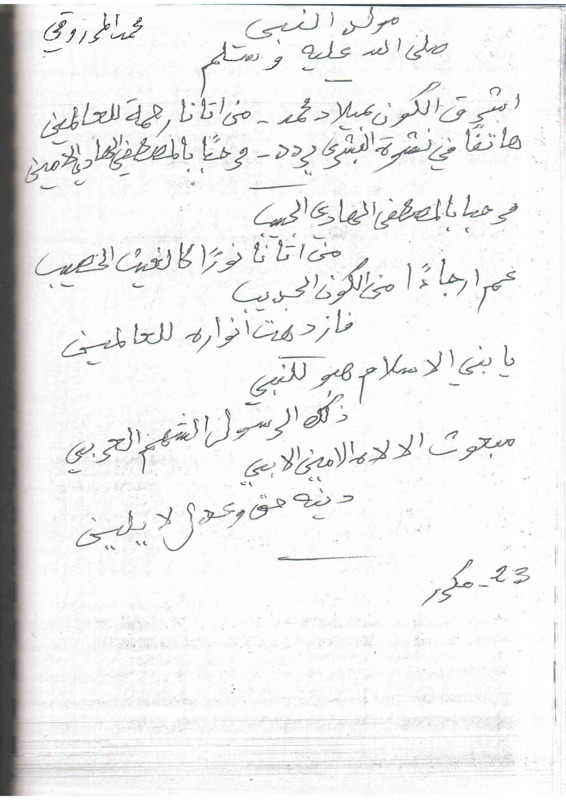 مولد النبي
محمد المرزوقي
صلى الله عليه وسلم
اشرق الكون بميلاد محمد - من اتانا رحمة للعالمين
هاتفا في نشرة البشرى يردد - مرحبًا بالمصطفى الهادي الامين
مرحبا بالمصطفى الهادي الحبيب
من اتانا نورًا كالغيث الخصيب
عم ارجاءًا من الكون الجديب
فازدهت أنواره للعالمين
يا بني الاسلام هبو للنبي
ذلك الرسول الشهم العربي
مبعوث الالاه الامين الابي
دينه حق وعدل لا يلين
23 - مكرر